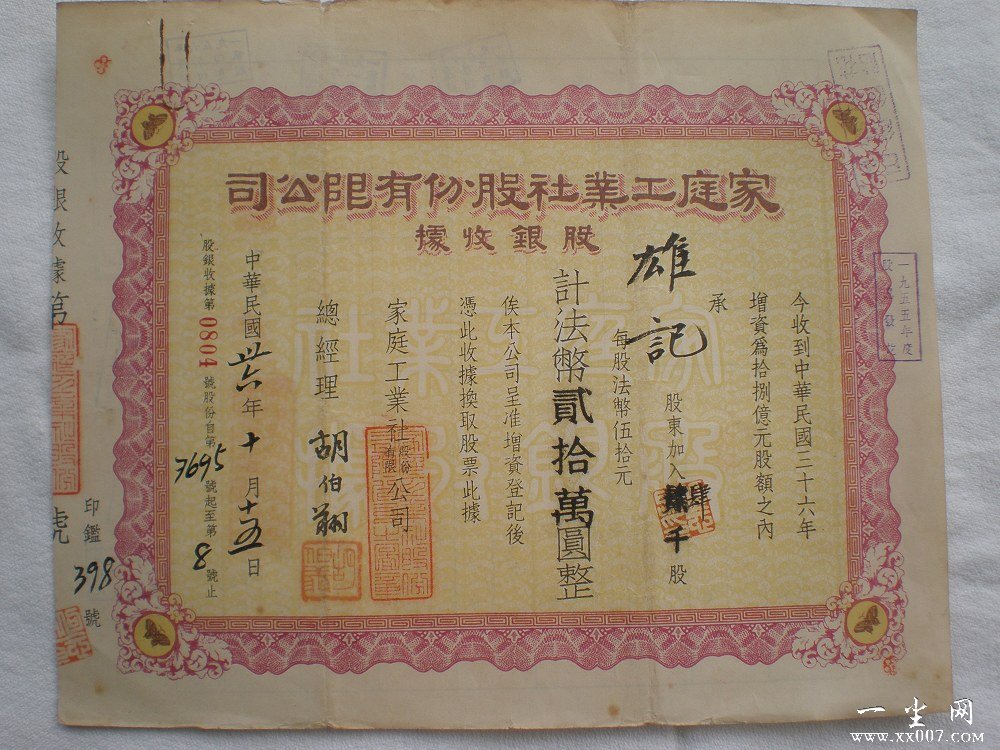 家庭工業社股份有限公司
股銀收據
今收到中華民國三十六年
增資爲拾捌億元股額之內
承
雄記
股東加入肆千股
每股法幣伍拾元
計法幣貳拾萬圓整
俟本公司呈准增資登記後
憑此收據換取股票此據
家庭工業社股份有限公司
總經理 胡伯翔
中華民國卅六年十月十五日
股銀收據第0804號股份自第7695號起至第8號止
股銀收據第
號
印鑑398號
家庭工業社
股銀收據
一九五五年度
一尘网
www.xx007.com